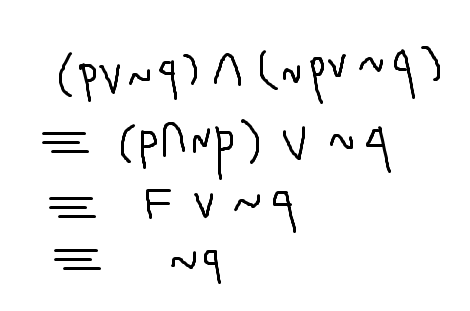 (p∨~q)∧(~p∨~q)
≡ (p∧~p) ∨ ~q
≡ F ∨ ~q
≡ ~q